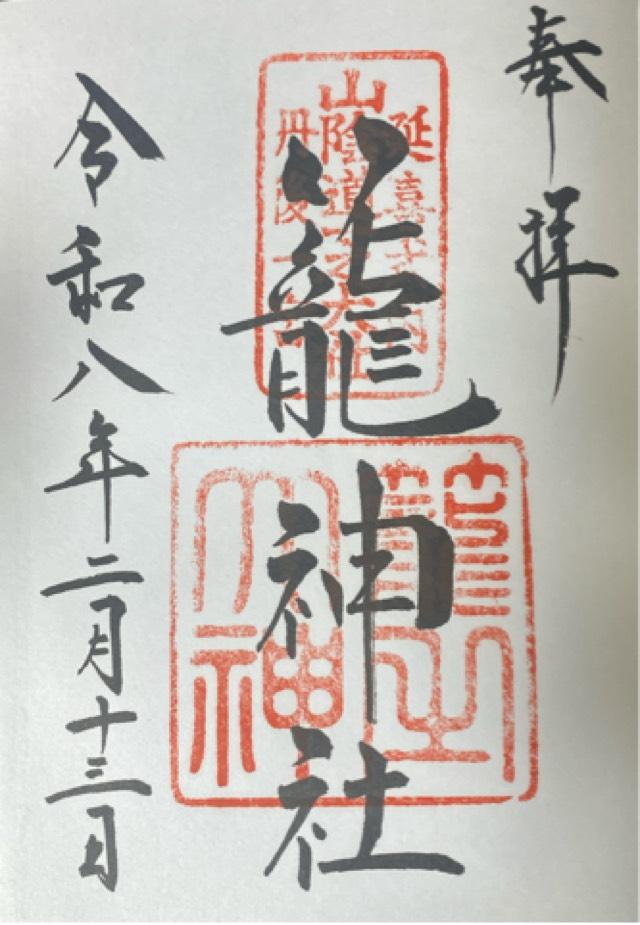 奉拝
延喜式内
山陰道之大社
丹後一宮
籠神社
籠之
大神
令和八年二月十三日